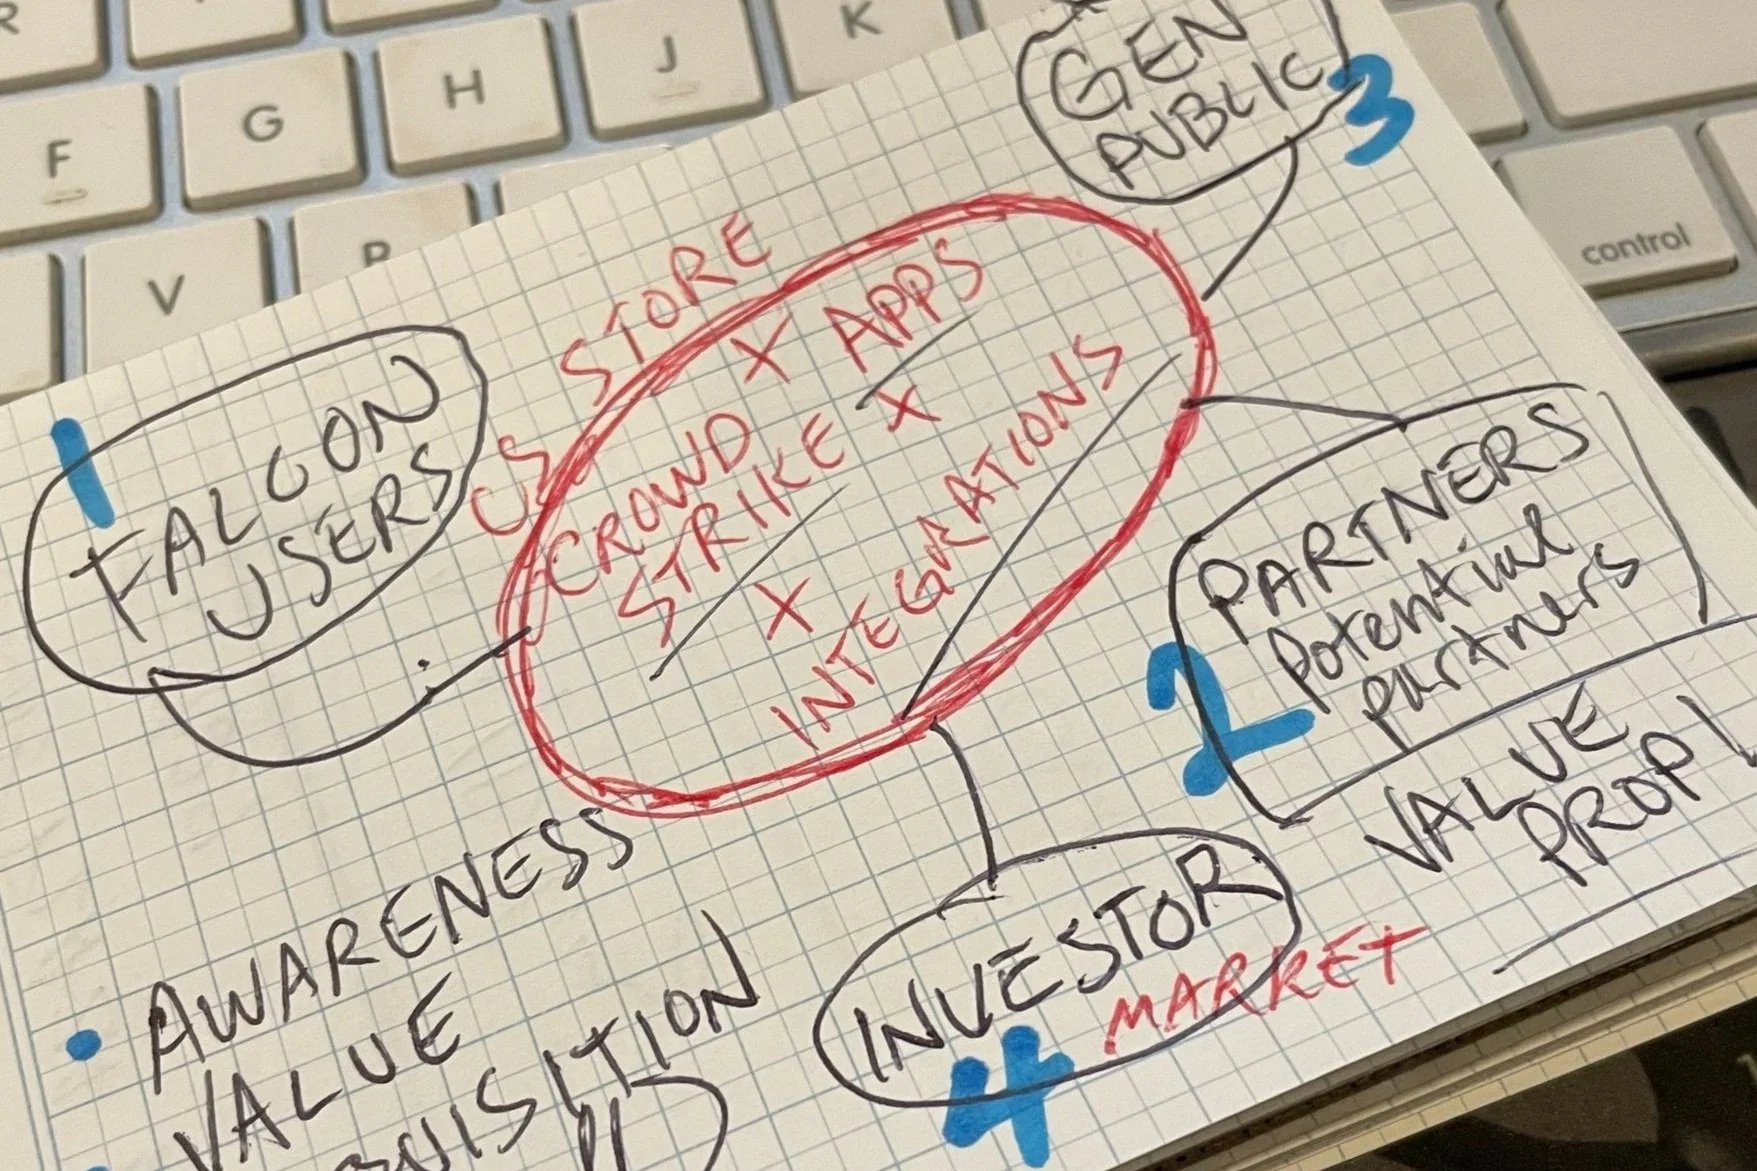 F
G
H
J
K
V
control
GEN
PUBLIC
3
CS STORE
X APPS
CROWD
STRIKE X
X
INTEGRATIONS
1
FALCON
USERS
PARTNERS
Potential
partners
2
VALUE
PROP
INVESTOR
MARKET
4
• AWARENESS
VALUE